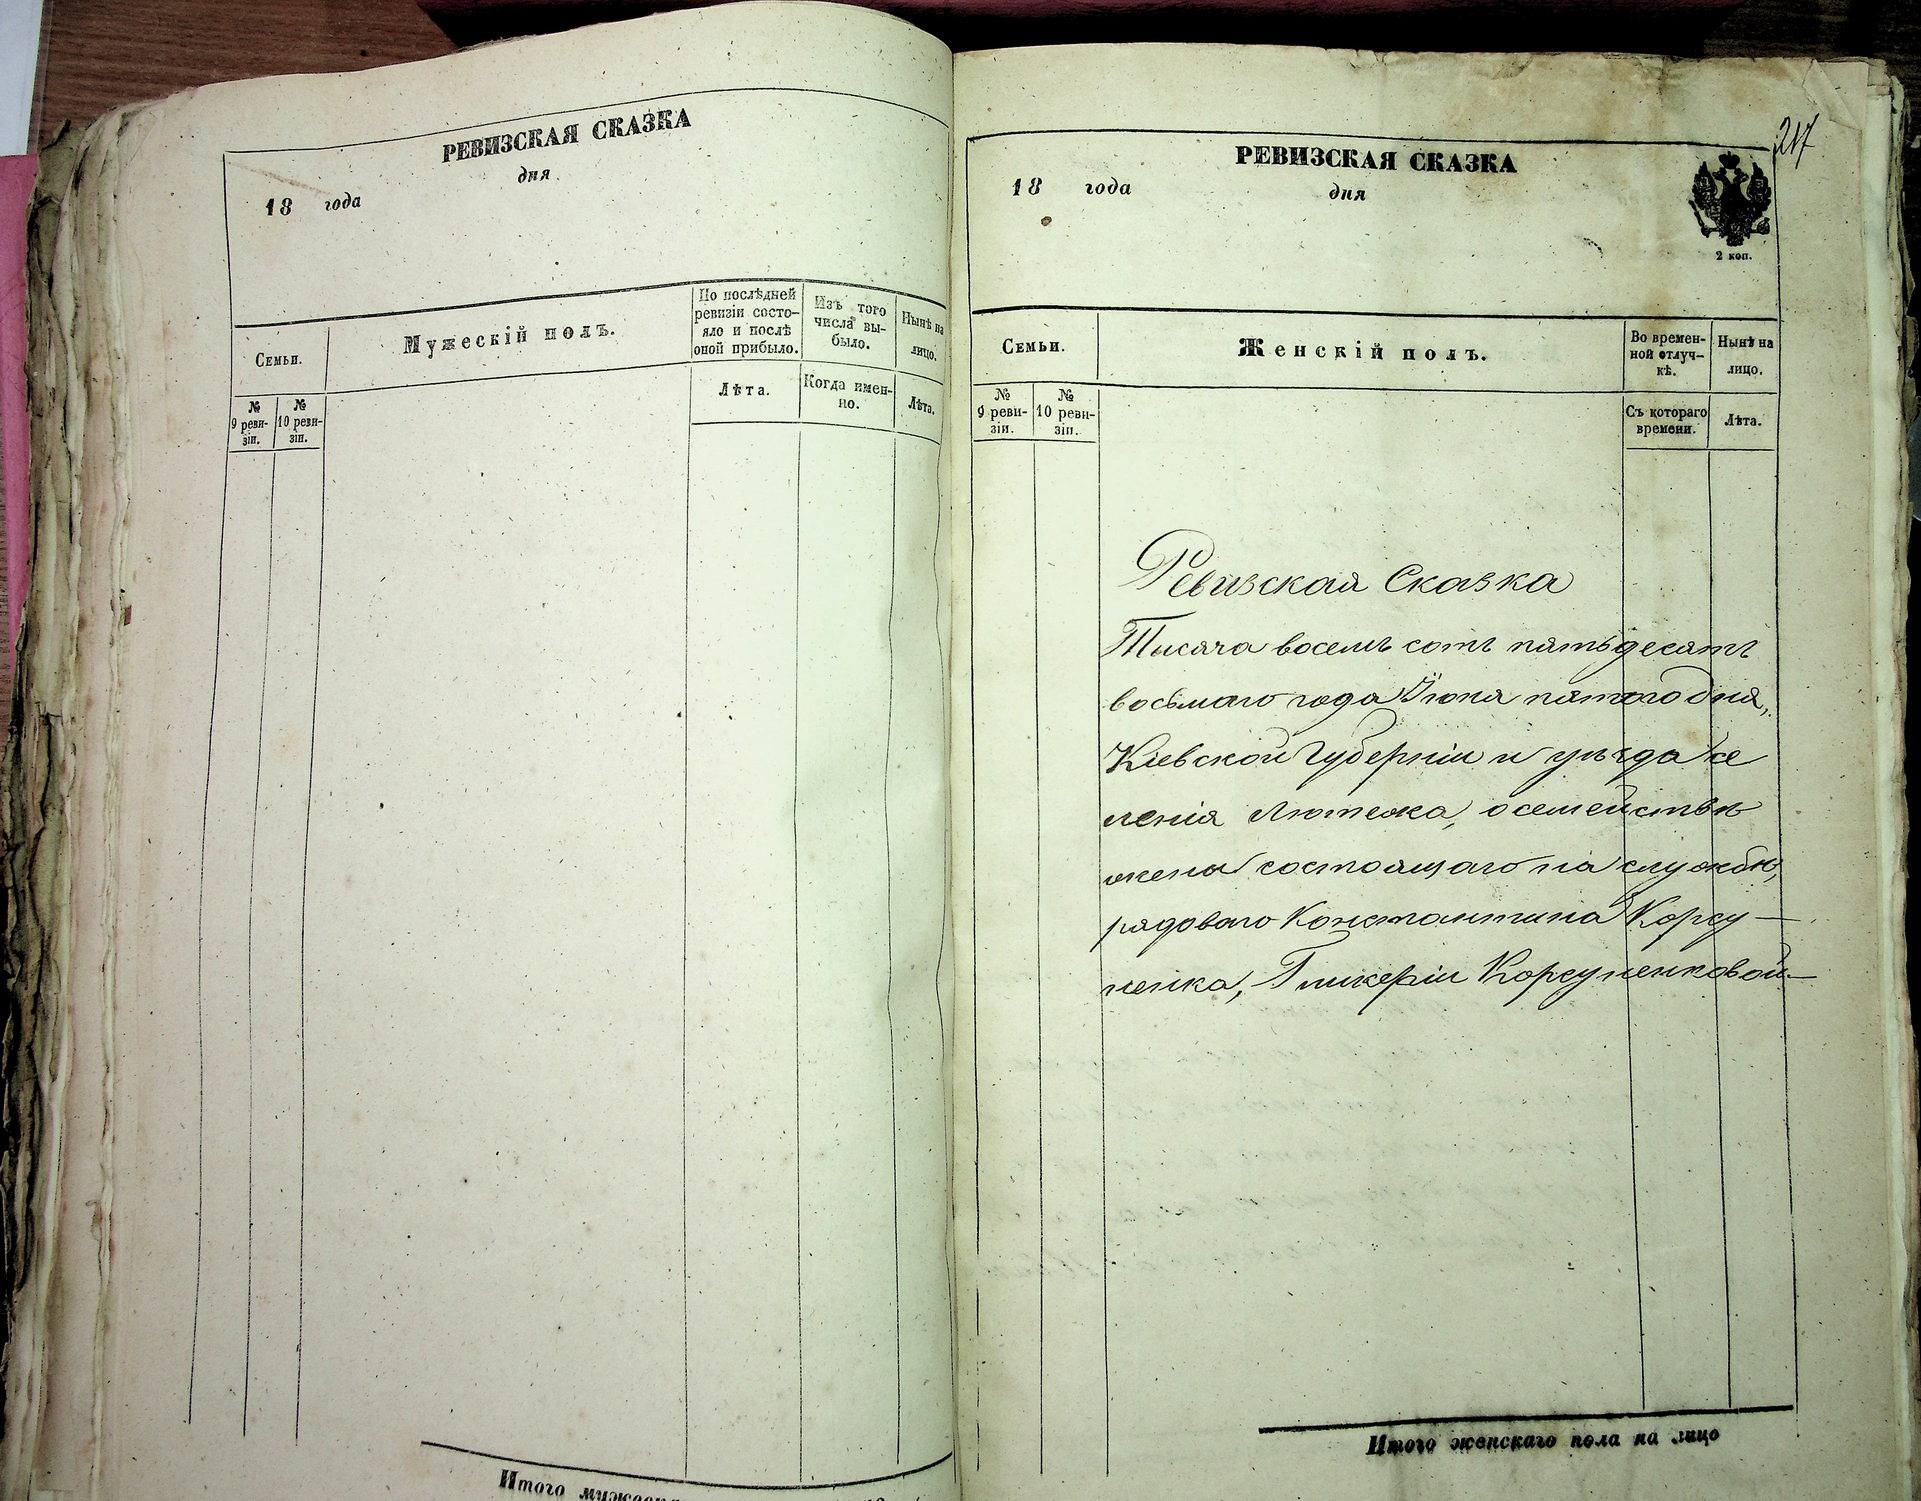 РЕВИЗСКАЯ СКАЗКА
дня
18 года
Семьи.
Мужескій полъ.
По послѣдней
ревизіи состо-
яло и послѣ
оной прибыло.
Изъ того
числа вы-
было.
Нынѣ на
лицо.
№
9 реви-
зіи.
№
10 реви-
зіи.
Лѣта.
Когда имен-
но.
Лѣта.
Итого
217
РЕВИЗСКАЯ СКАЗКА
18 года
дня
2 коп.
Семьи.
Женскій полъ.
Во времен-
ной отлуч-
кѣ.
Нынѣ на
лицо.
№
9 реви-
зіи.
№
10 реви-
зіи.
Съ котораго
времени.
Лѣта.
Ревизская Сказка
Тысяча восемь сотъ пятьдесятъ
восьмаго года Іюня пятого дня,
Кіевской Губерніи и уѣзда се
ленія Лютежа, о семействѣ
жены состоящаго на службѣ,
рядоваго Константина Корсу—
ненка, Гликеріи Корсуненковой—
Итого женскаго пола на лицо